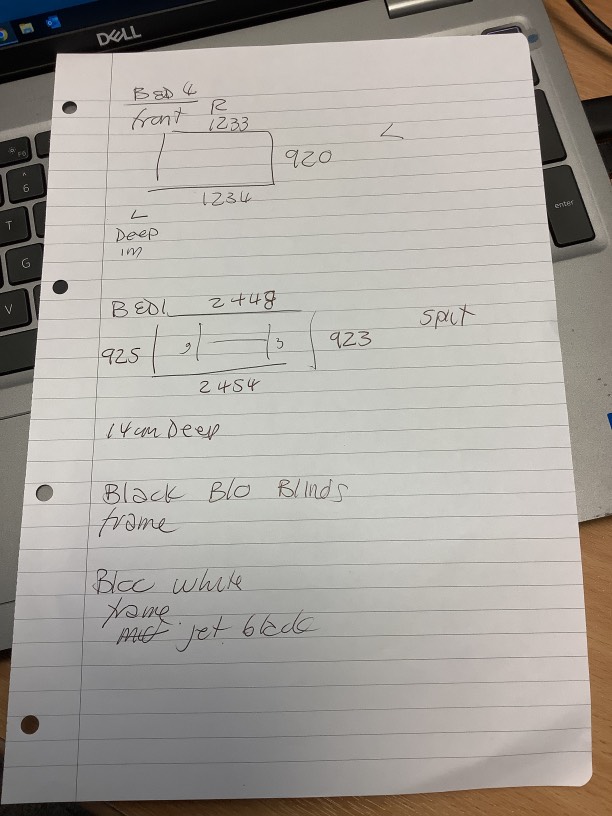 DELL
BED 4
front
R
1233
L
920
1234
L
Deep
1m
BED1
2448
split
925
3
923
2454
14cm Deep
Black Blo Blinds
frame
Blcc white
frame
jet black
F6
^
6
T
G
V
enter